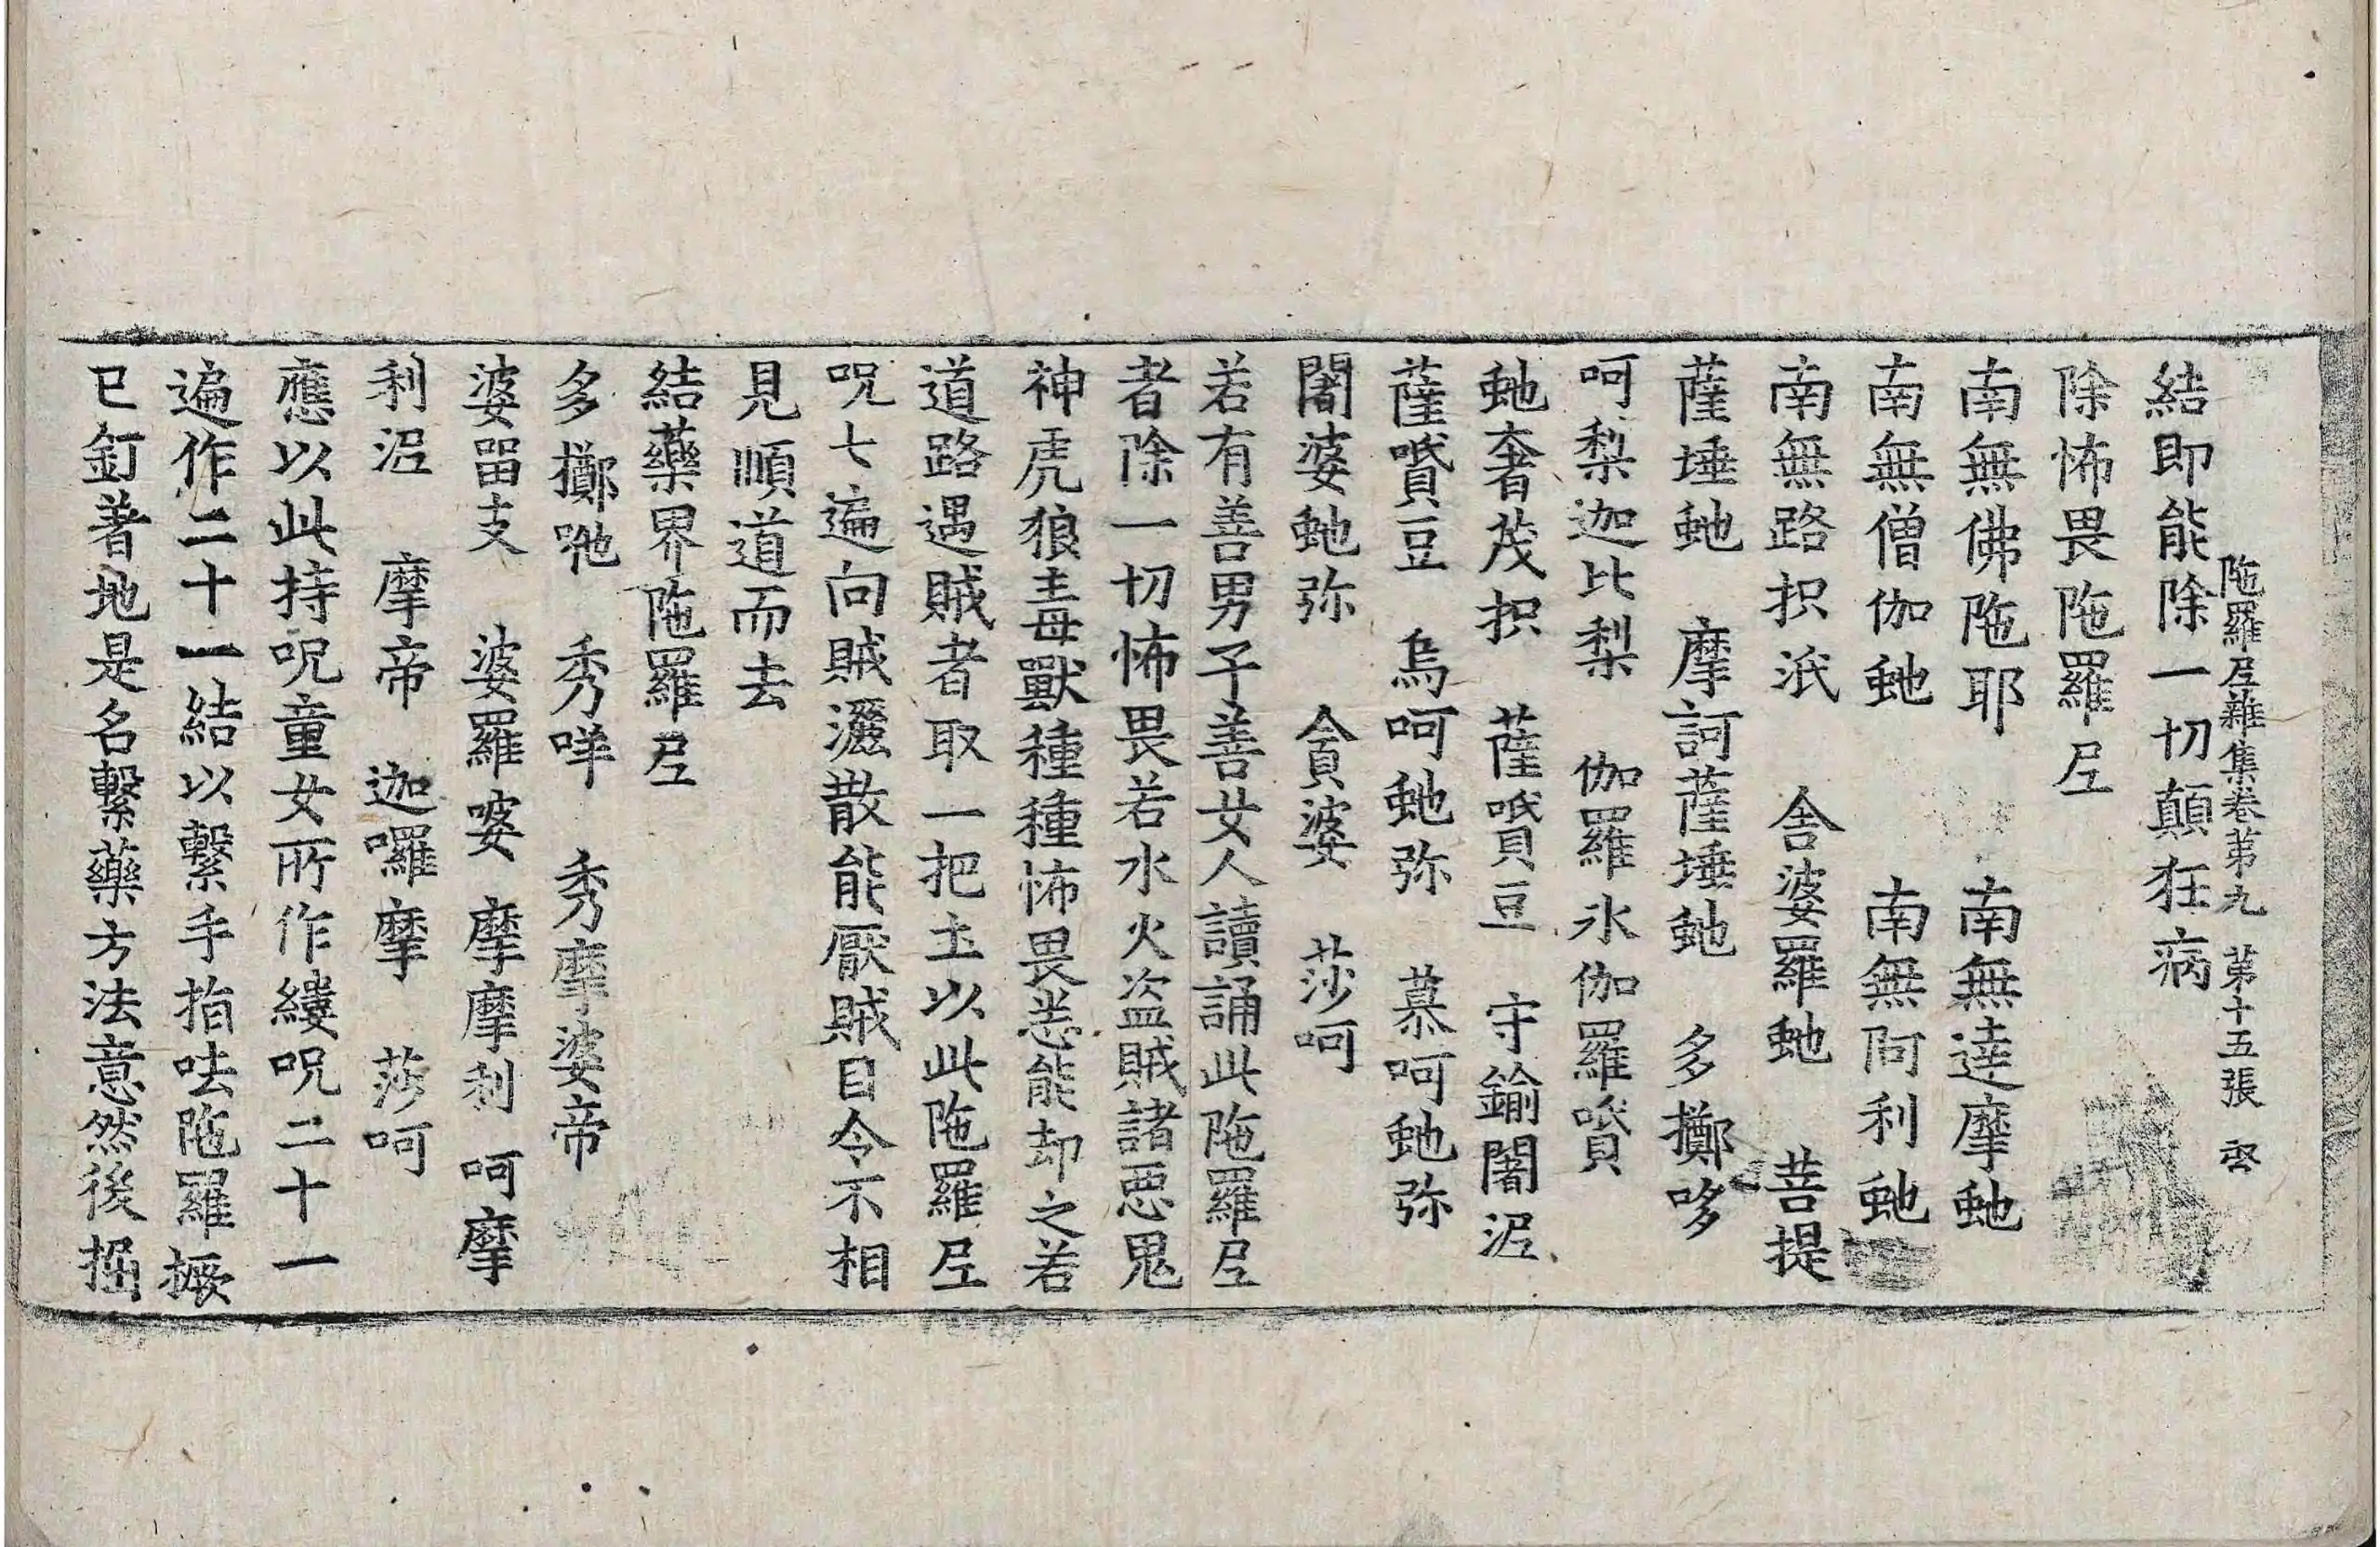 陁羅𡰱雜集卷苐九 苐十五張 啓
結即能除一切顛狂病
除怖畏陁羅𡰱
南無佛陁耶 南無達摩虵
南無僧伽虵 南無阿利虵
南無路抧泜 舎婆羅虵 菩提
薩埵虵 摩訶薩埵虵 多擲哆
呵梨迦比梨 伽羅氷伽羅嚽
虵奢茂抧 薩嚽豆 守鍮闍泥
薩嚽豆 烏呵虵弥 慕呵虵弥
闍婆虵弥 貪婆 莎呵
若有善男子善女人讀誦此陁羅𡰱
者除一切怖畏若水火盗賊諸悪鬼
神虎狼毒獸種種怖畏悉能却之若
道路遇賊者取一把土以此陁羅𡰱
呪七遍向賊灑散能厭賊目令不相
見順道而去
結藥界陁羅𡰱
多擲咃 秀咩 秀摩婆帝
婆留支 婆羅嘙 摩摩利 呵摩
利泥 摩帝 迦囉摩 莎呵
應以此持呪童女所作縷呪二十一
遍作二十一結以繫手指呿陁羅橛
已釘著地是名繫藥方法意然後掘